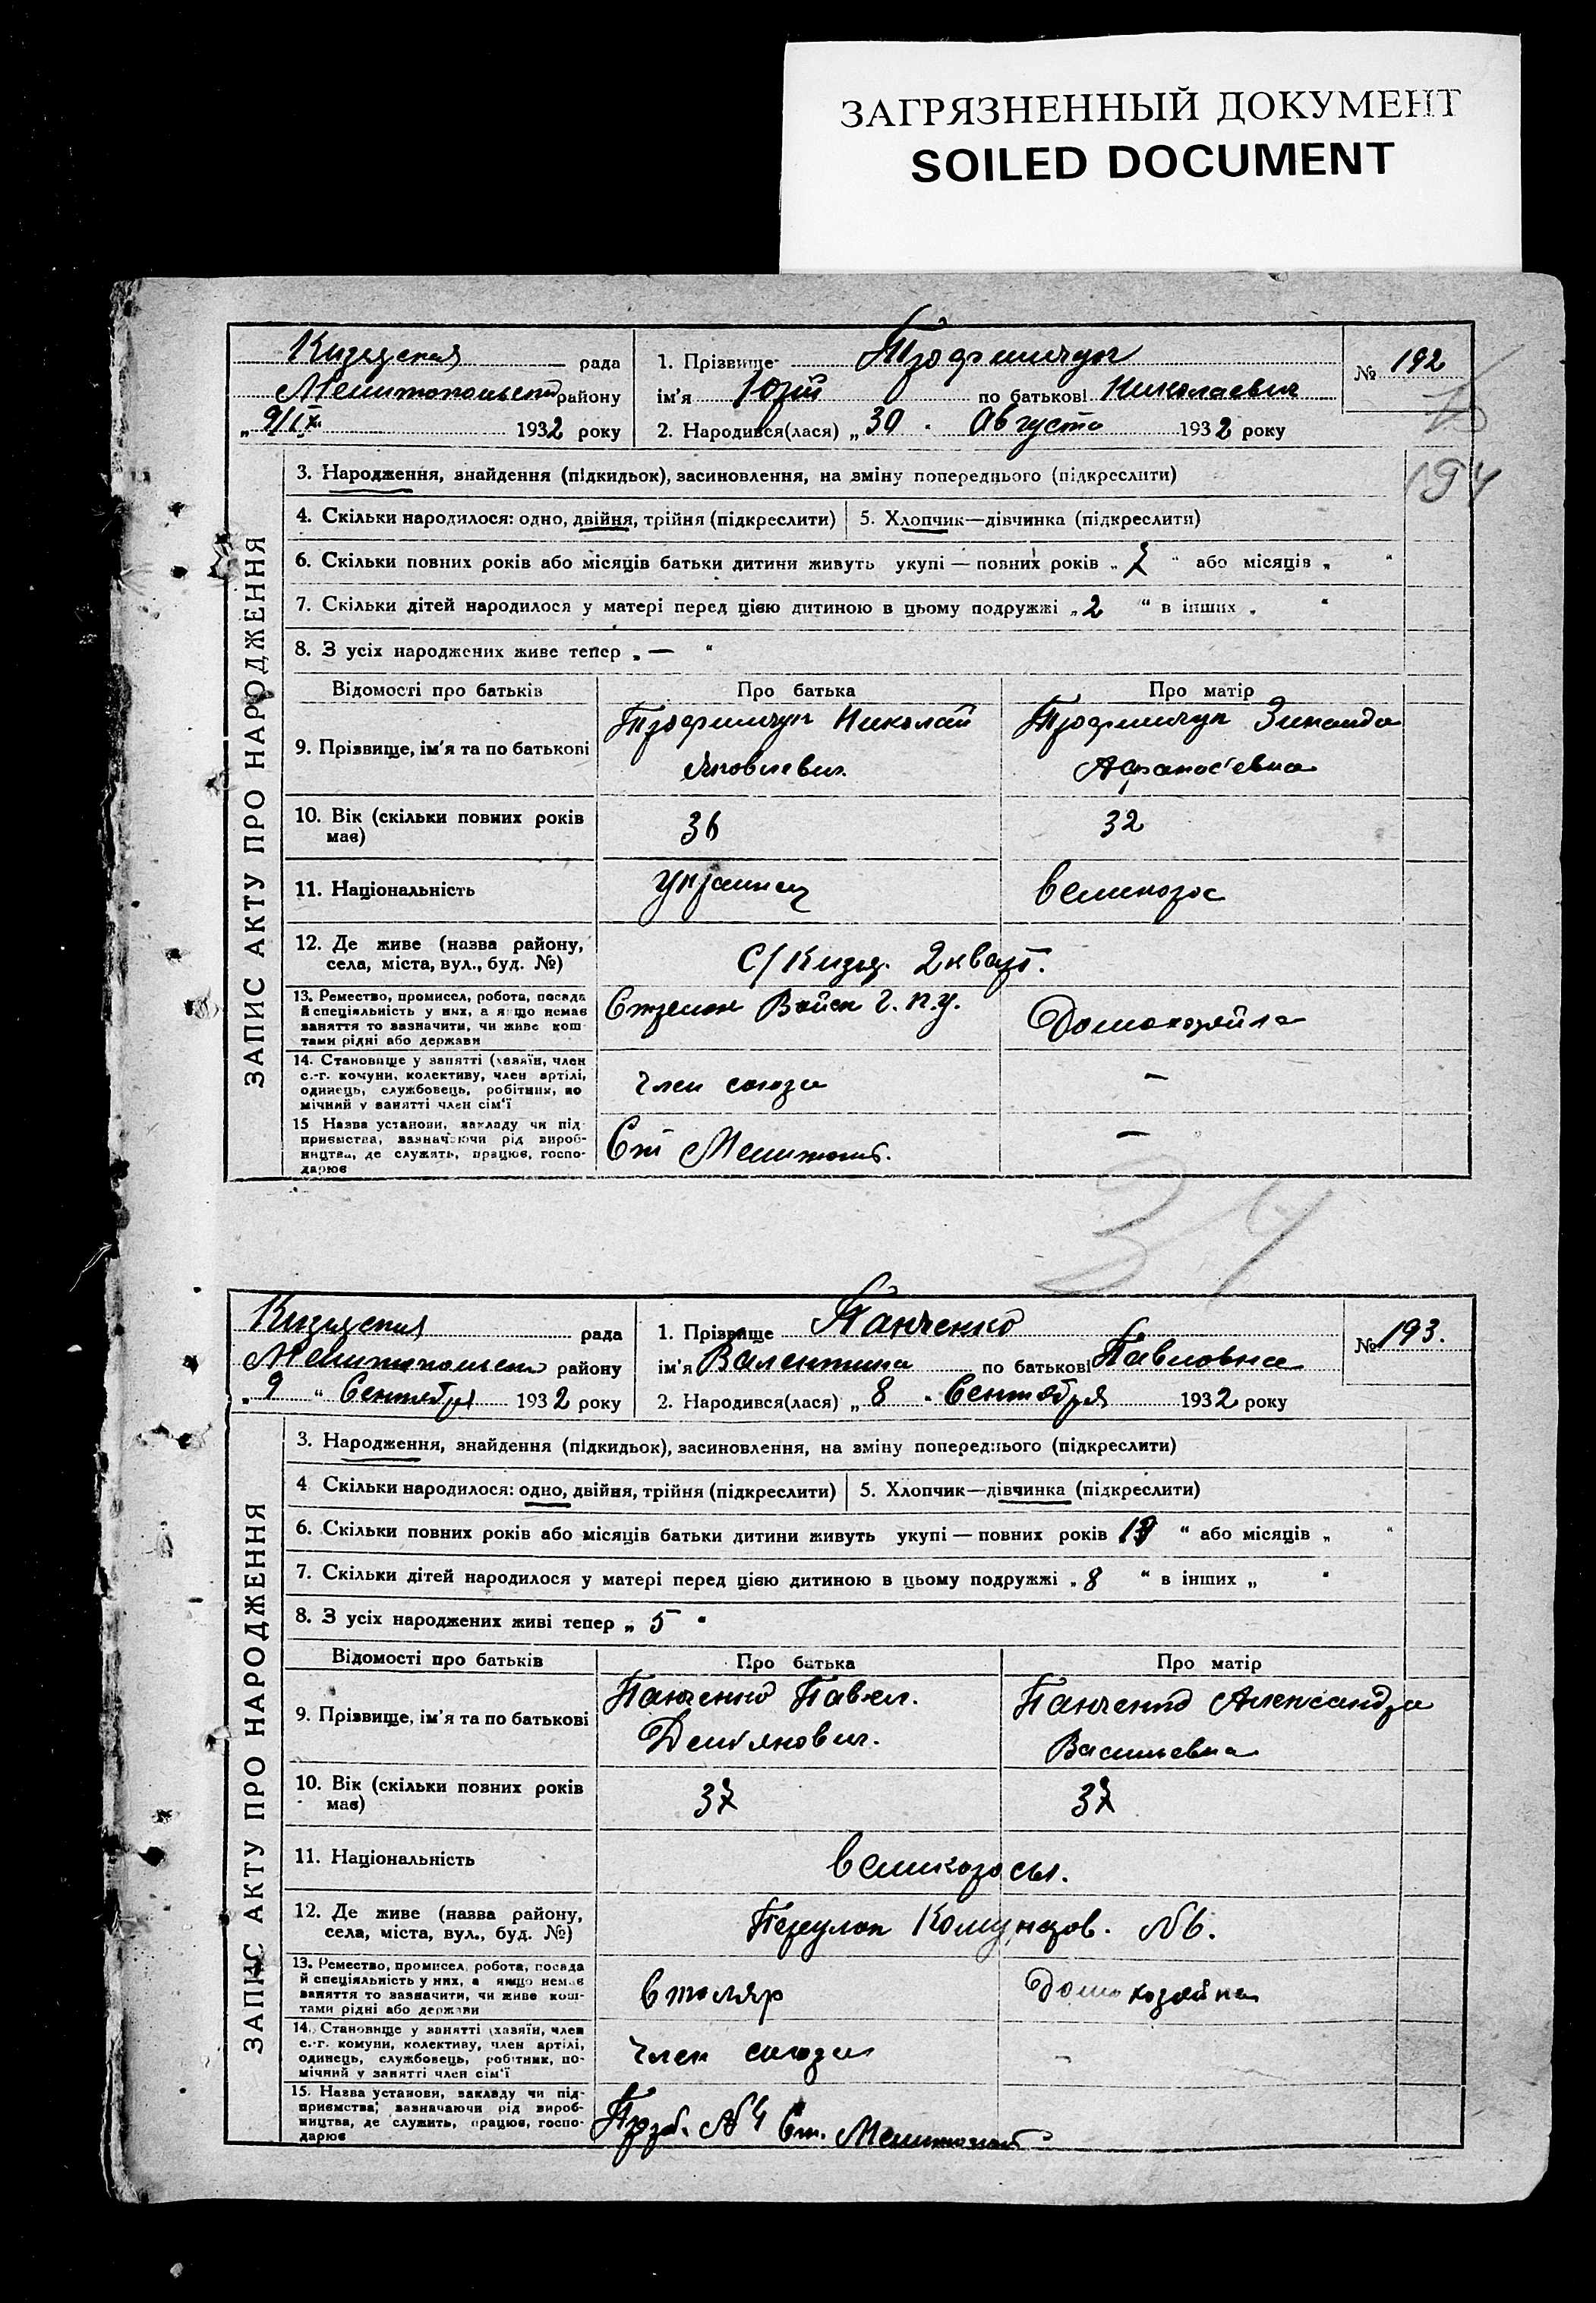 ЗАГРЯЗНЕННЫЙ ДОКУМЕНТ
SOILED DOCUMENT
ЗАПИС АКТУ ПРО НАРОДЖЕННЯ
Кизярская рада
Мелитопольск району
„9/IX. 1932 року
1. Прізвище Трофимчук
ім'я Юрий по батькові Николаевич
2. Народився(лася) „30 " Августа 1932 року
№ 192
194
3. Народження, знайдення (підкидьок), засиновлення, на зміну попереднього (підкреслити)
4. Скільки народилося: одно, двійня, трійня (підкреслити) 5. Хлопчик—дівчинка (підкреслити)
6. Скільки повних років або місяців батьки дитини живуть укупі — повних років „7 " або місяців „ "
7. Скільки дітей народилося у матері перед цією дитиною в цьому подружжі „2 " в інших „ "
8. З усіх народжених живе тепер „ — "
Відомості про батьків Про батька Про матір
9. Прізвище, ім'я та по батькові
Трофимчук Николай
Яковлевич.
Трофимчук Зинаида
Афанас'евна
10. Вік (скільки повних років
має)
36 32
11. Національність Украинец великорос
12. Де живе (назва району,
села, міста, вул., буд. №)
С/Кизяр. 2 кварт.
13. Ремество, промисел, робота, посада
й спеціяльність у них, а якщо немає
заняття то зазначити, чи живе кош-
тами рідні або держави
Стрелок Войск Г.П.У. Домохозяйка
14. Становище у занятті (хазяїн, член
с.-г. комуни, колективу, член артілі,
одинець, службовець, робітник, по
мічний у занятті член сім'ї
член союза —
15 Назва установи, закладу чи під-
приємства, зазначаючи рід вироб-
ництва, де служить, працює, госпо-
дарює
Ст Мелитоп. —
34
ЗАПИС АКТУ ПРО НАРОДЖЕННЯ
Кизярская рада
Мелитопольск району
„9 " Сентября 1932 року
1. Прізвище Панченко
ім'я Валентина по батькові Павловна
2. Народився(лася) „8 " Сентября 1932 року
№ 193.
3. Народження, знайдення (підкидьок), засиновлення, на зміну попереднього (підкреслити)
4 Скільки народилося: одно, двійня, трійня (підкреслити) 5. Хлопчик—дівчинка (підкреслити)
6. Скільки повних років або місяців батьки дитини живуть укупі — повних років " або місяців „ "
7. Скільки дітей народилося у матері перед цією дитиною в цьому подружжі „8 " в інших „ "
8. З усіх народжених живі тепер „ 5 "
Відомості про батьків Про батька Про матір
9. Прізвище, ім'я та по батькові
Панченко Павел.
Демьянович.
Панченко Александра
Васильевна
10. Вік (скільки повних років
має)
37 37
11. Національність великоросы.
12. Де живе (назва району,
села, міста, вул., буд. №)
Переулок Комунаров. №6.
13. Ремество, промисел, робота, посада
й спеціяльність у них, а якщо немає
заняття то зазначити, чи живе кош-
тами рідні або держави
столяр Домохозяйка
14. Становище у занятті (хазяїн, член
с.-г. комуни, колективу, член артілі,
одинець, службовець, робітник, по-
мічний у занятті член сім'ї
член союза —
15. Назва установи, закладу чи під-
приємства, зазначаючи рід вироб-
ництва, де служить, працює, госпо-
дарює
№4 Ст. Мелитополь